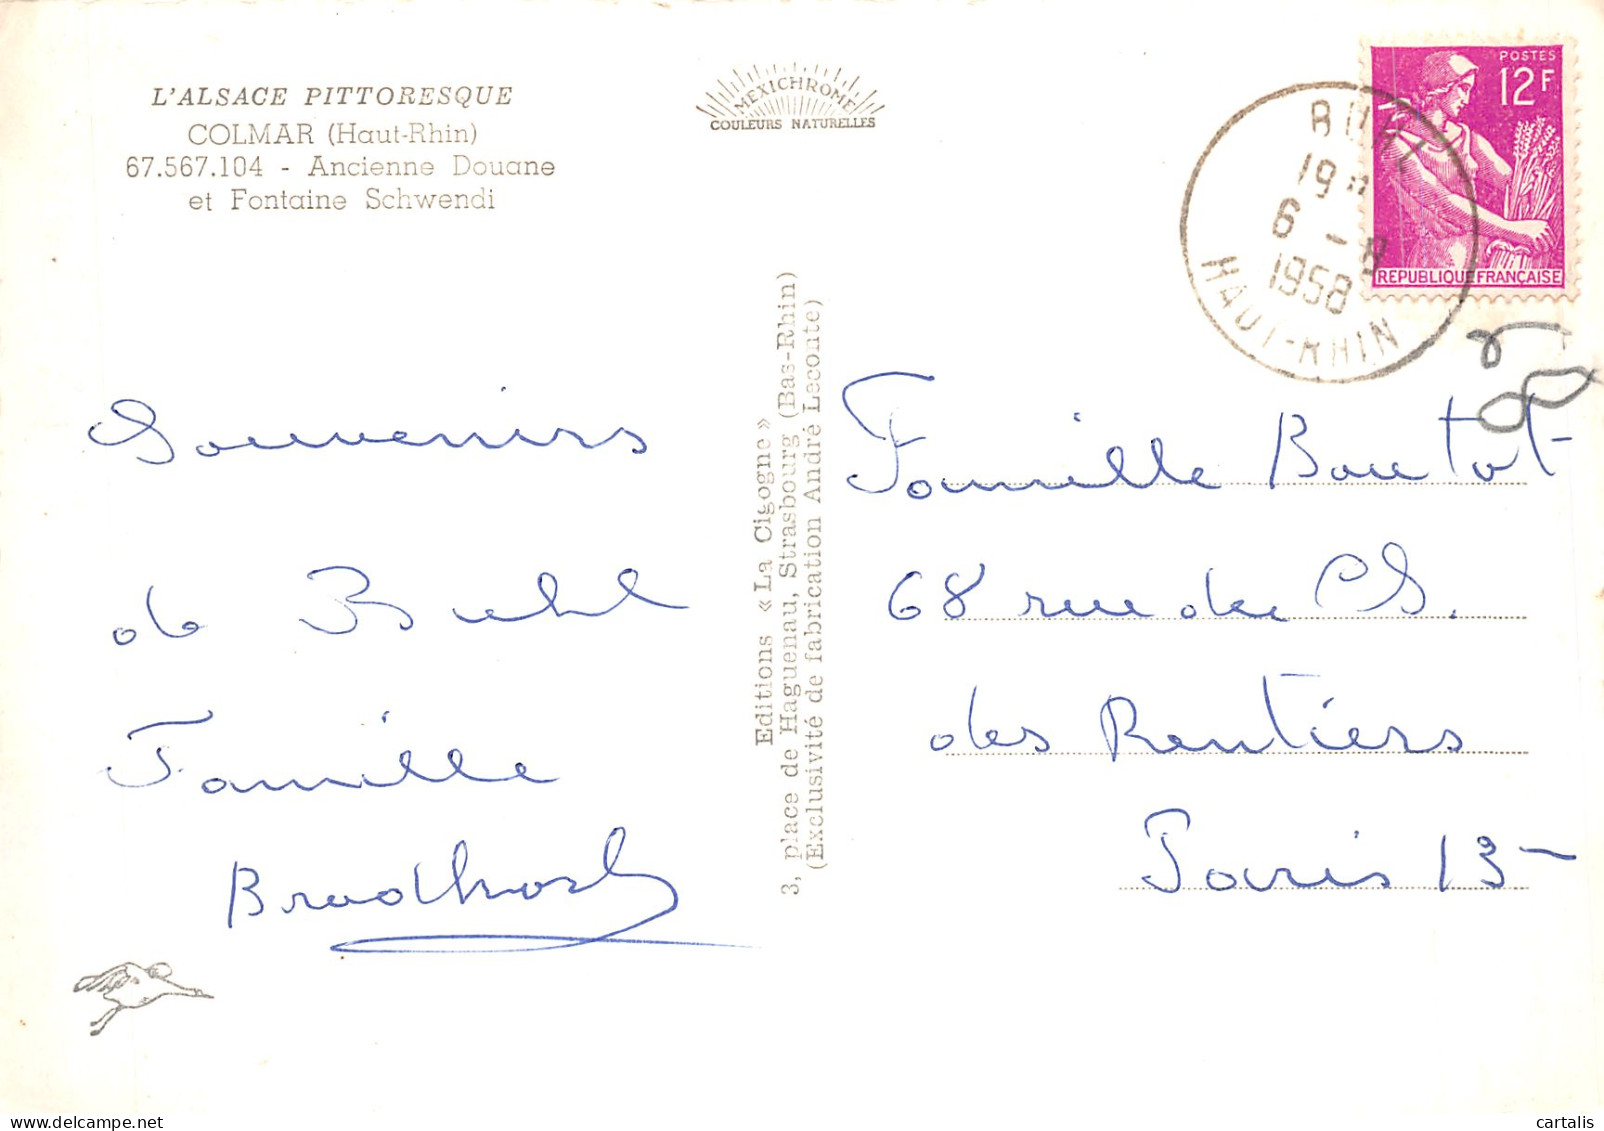 L'ALSACE PITTORESQUE
COLMAR (Haut-Rhin)
67.567.104 - Ancienne Douane
et Fontaine Schwendi
MEXICHROME
COULEURS NATURELLES
BUHL
19
6 - 8
1958
HAUT-RHIN
POSTES
12F
REPUBLIQUE FRANÇAISE
Souvenirs
de Buhl
Famille
Editions « La Cigogne »
3, place de Haguenau, Strasbourg (Bas-Rhin)
(Exclusivité de fabrication André Leconte)
Famille Boutot
68 rue du
des Rentiers
Paris 13